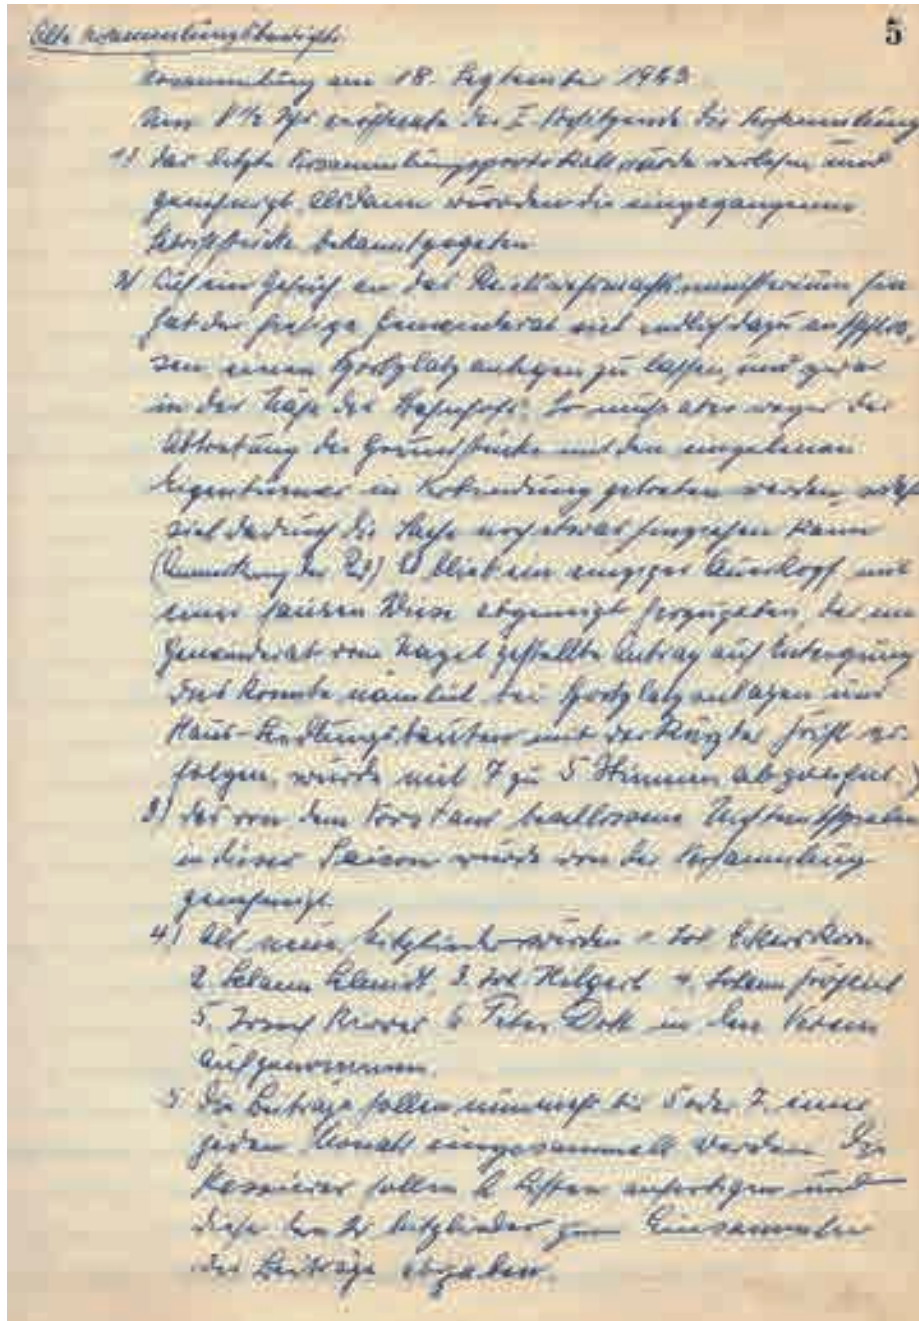 Alte Versammlungsberichte. 5
Versammlung am 18. September 1923
Um 8 1/2 Uhr eröffnete der I. Vorsitzende die Versammlung
1) das letzte Versammlungsprotokoll wurde verlesen und
genehmigt, alsdann wurden die eingegangenen
Schriftstücke bekanntgegeben.
2) Auf ein Gesuch an das hin
hat der hiesige Gemeinderat sich endlich dazu entschlos-
sen, einen Sportplatz anlegen zu lassen, und zwar
in der Nähe des Bahnhofs. Es muß aber wegen der
Abtretung der Grundstücke mit den einzelnen
Eigentümer in Verbindung getreten werden,
sich dadurch die Sache noch etwas hinziehen kann
(Anmerkung zu 2) Es blieb ein einziger mit
einer sauren Wiese abgeneigt herzugeben, der im
Gemeinderat vom gestellte Antrag auf Enteignung
das konnte nämlich bei Sportplatzanlagen und
Haus-Siedlungsbauten mit der Frist er-
folgen, wurde mit 7 zu 5 Stimmen abgelehnt.)
3) der von dem Vorstand beschlossene
in dieser Saison wurde von der Versammlung
genehmigt.
4) Als neue Mitglieder wurden 1. Joh.
2. Schmidt, 3. Joh. Hilgert 4. Johann Fröhlich
5. Josef 6. Peter Doll in den Verein
aufgenommen.
5 Die Beiträge sollen nunmehr bis 5 oder 7. eines
jeden Monats eingesammelt werden. Die
Kassierer sollen 2 Listen anfertigen und
diese Mitglieder zum Einsammeln
der Beiträge abgeben.